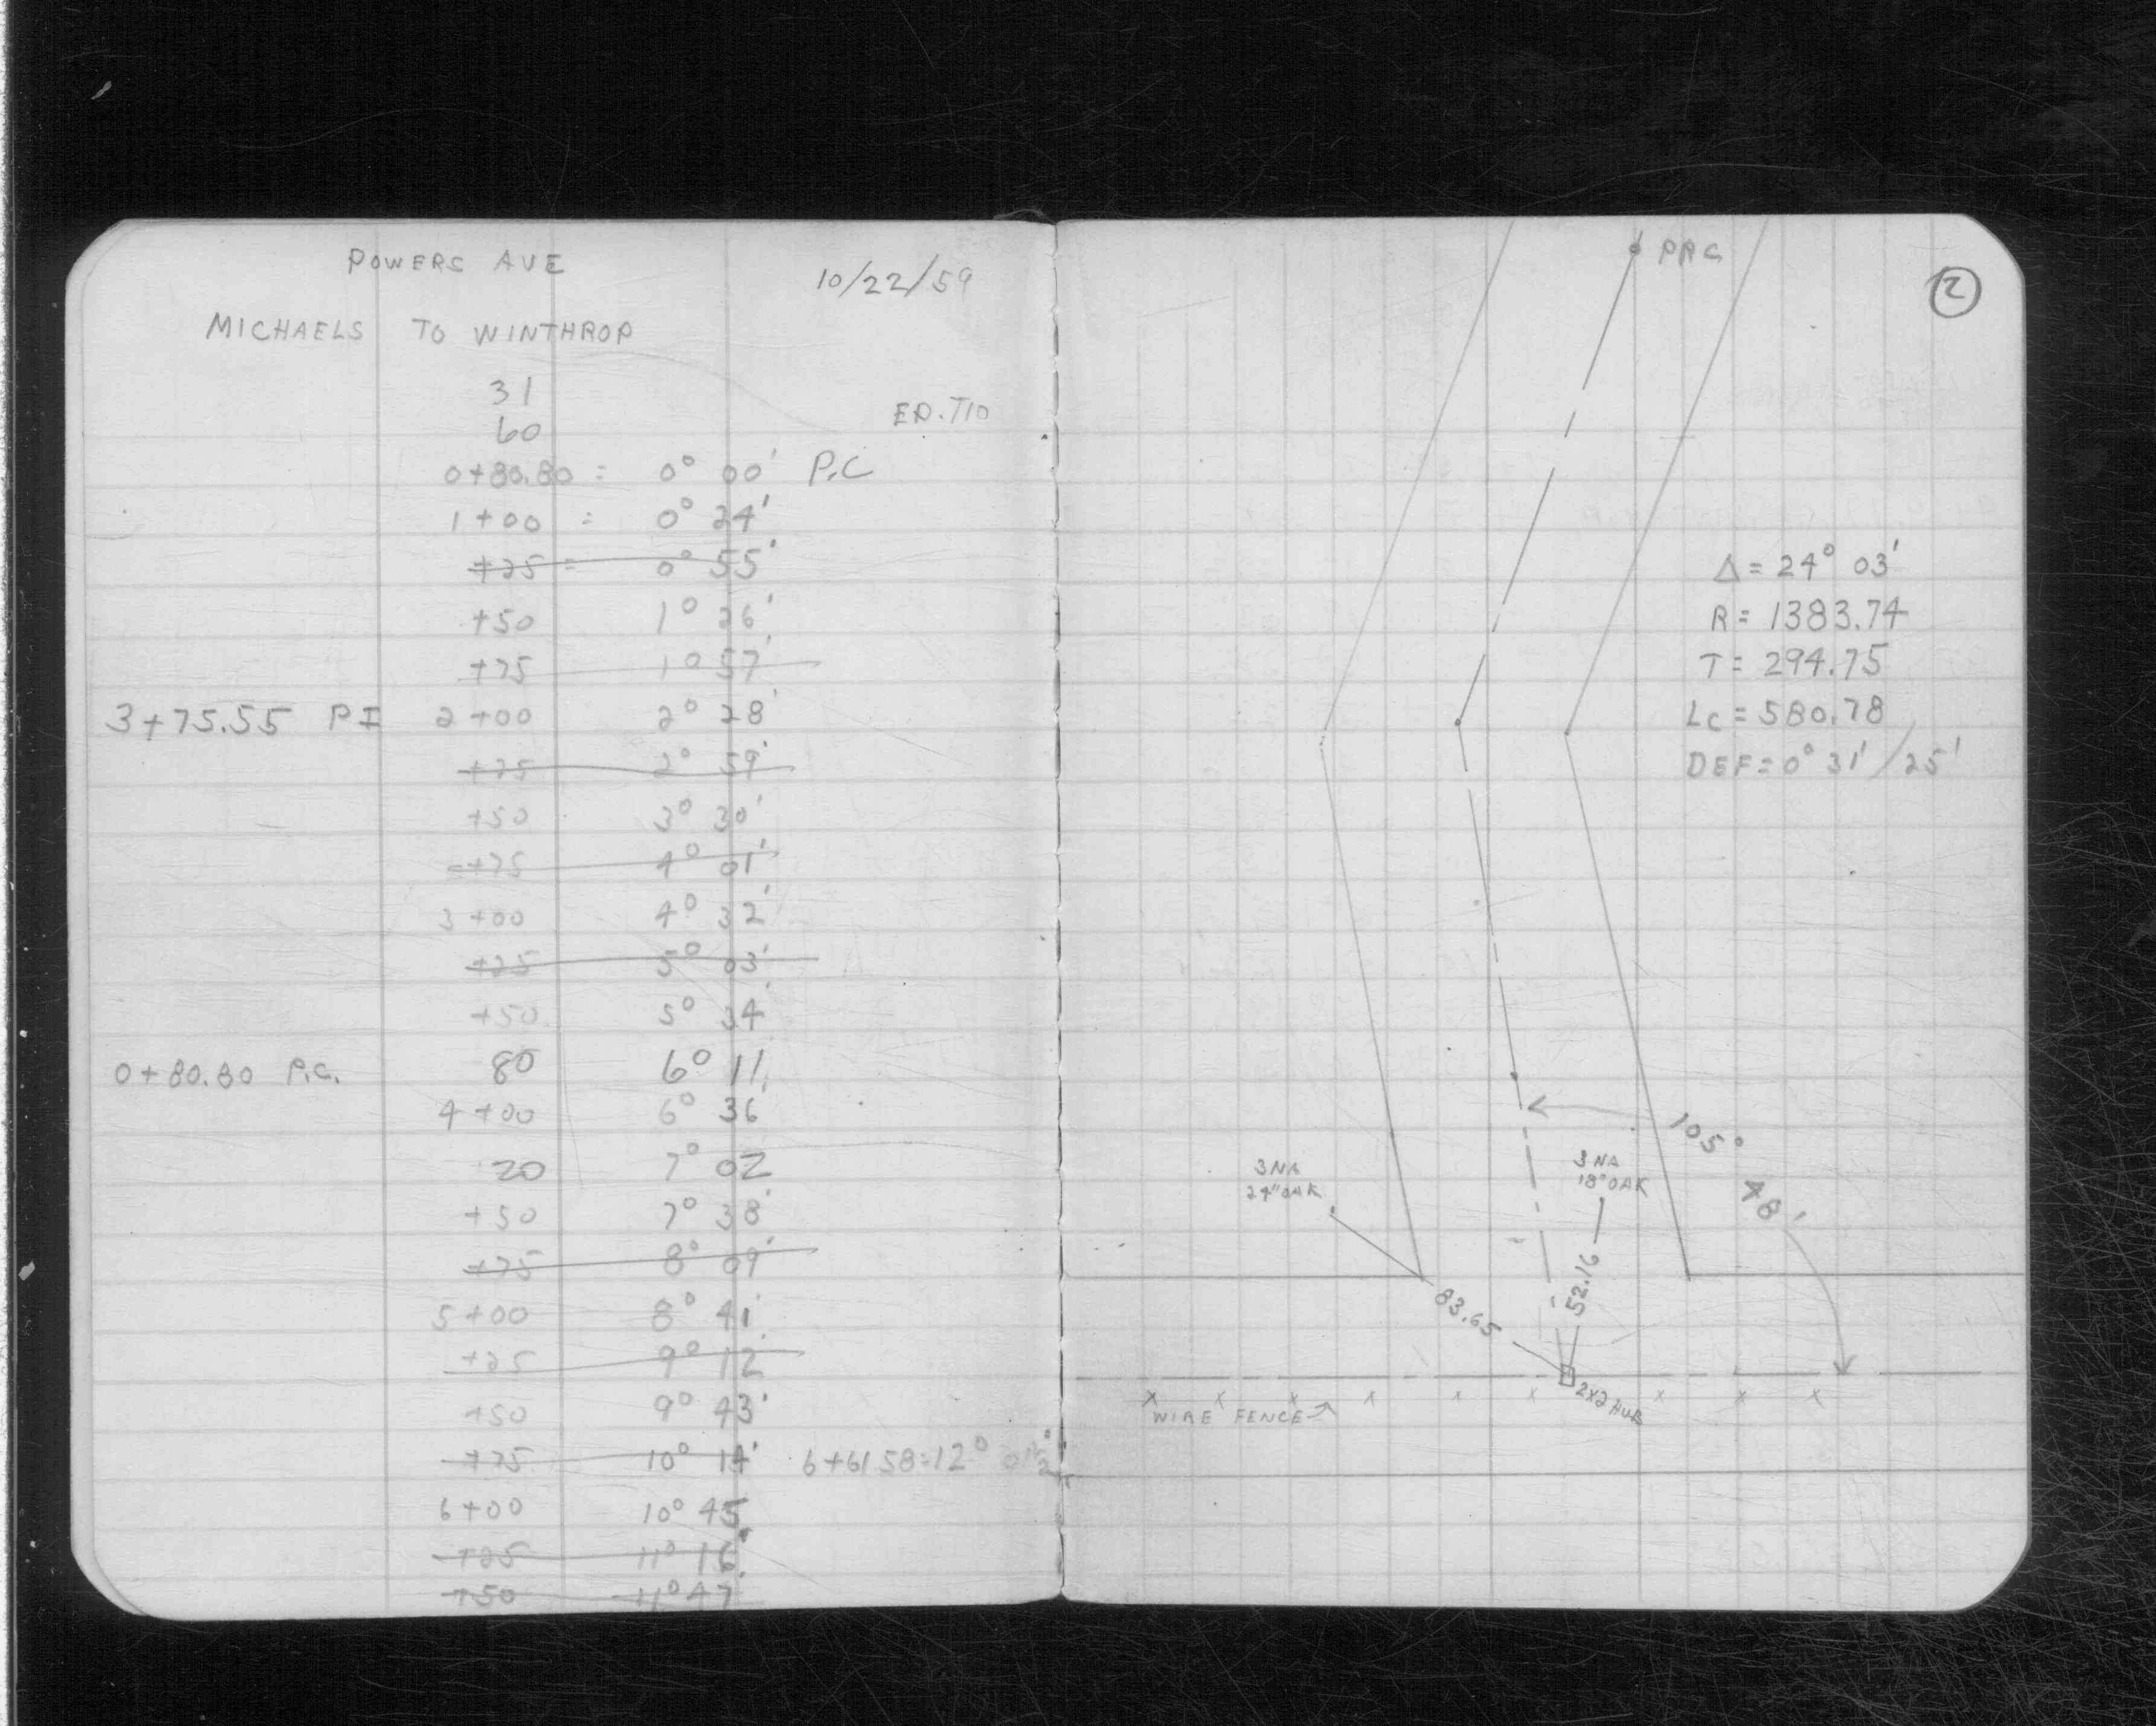 POWERS AVE
10/22/59
MICHAELS TO WINTHROP
31
60
0+80.80 = 0° 00' P.C
1+00 = 0° 24'
+25 = 0° 55'
+50 1° 26'
+75 1° 57'
3+75.55 PI 2+00 2° 28'
+25 2° 59'
+50 3° 30'
+75 4° 01'
3+00 4° 32'
+25 5° 03'
+50 5° 34'
0+80.80 P.C. 80 6° 11'
4+00 6° 36'
20 7° 02
+50 7° 38'
+75 8° 09'
5+00 8° 41'
+25 9° 12'
+50 9° 43'
+75 10° 14' 6+61.58=12° 01½'
6+00 10° 45'
+25 11° 16'
+50 11° 47'
PRC
2
Δ = 24° 03'
R = 1383.74
T = 294.75
Lc = 580.78
DEF = 0° 31' / 25'
105° 48'
3 NA
24" OAK
3 NA
18" OAK
52.16
83.65
2X2 HUB
WIRE FENCE